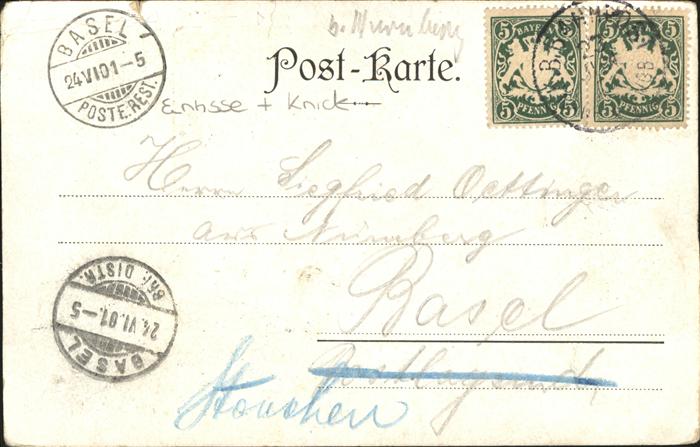 BASEL
24.VI.01.-5
POSTE.REST.
b. Nürnberg
BAYERN
5 5
PFENNIG
BAYERN
5 5
PFENNIG
BAHNHOF
Post-Karte.
Einrisse + Knick
Herrn Siegfried Oettinger
aus Nürnberg
Basel
postlagernd,
BASEL
24.VI.01.-5
BRF. DISTR.